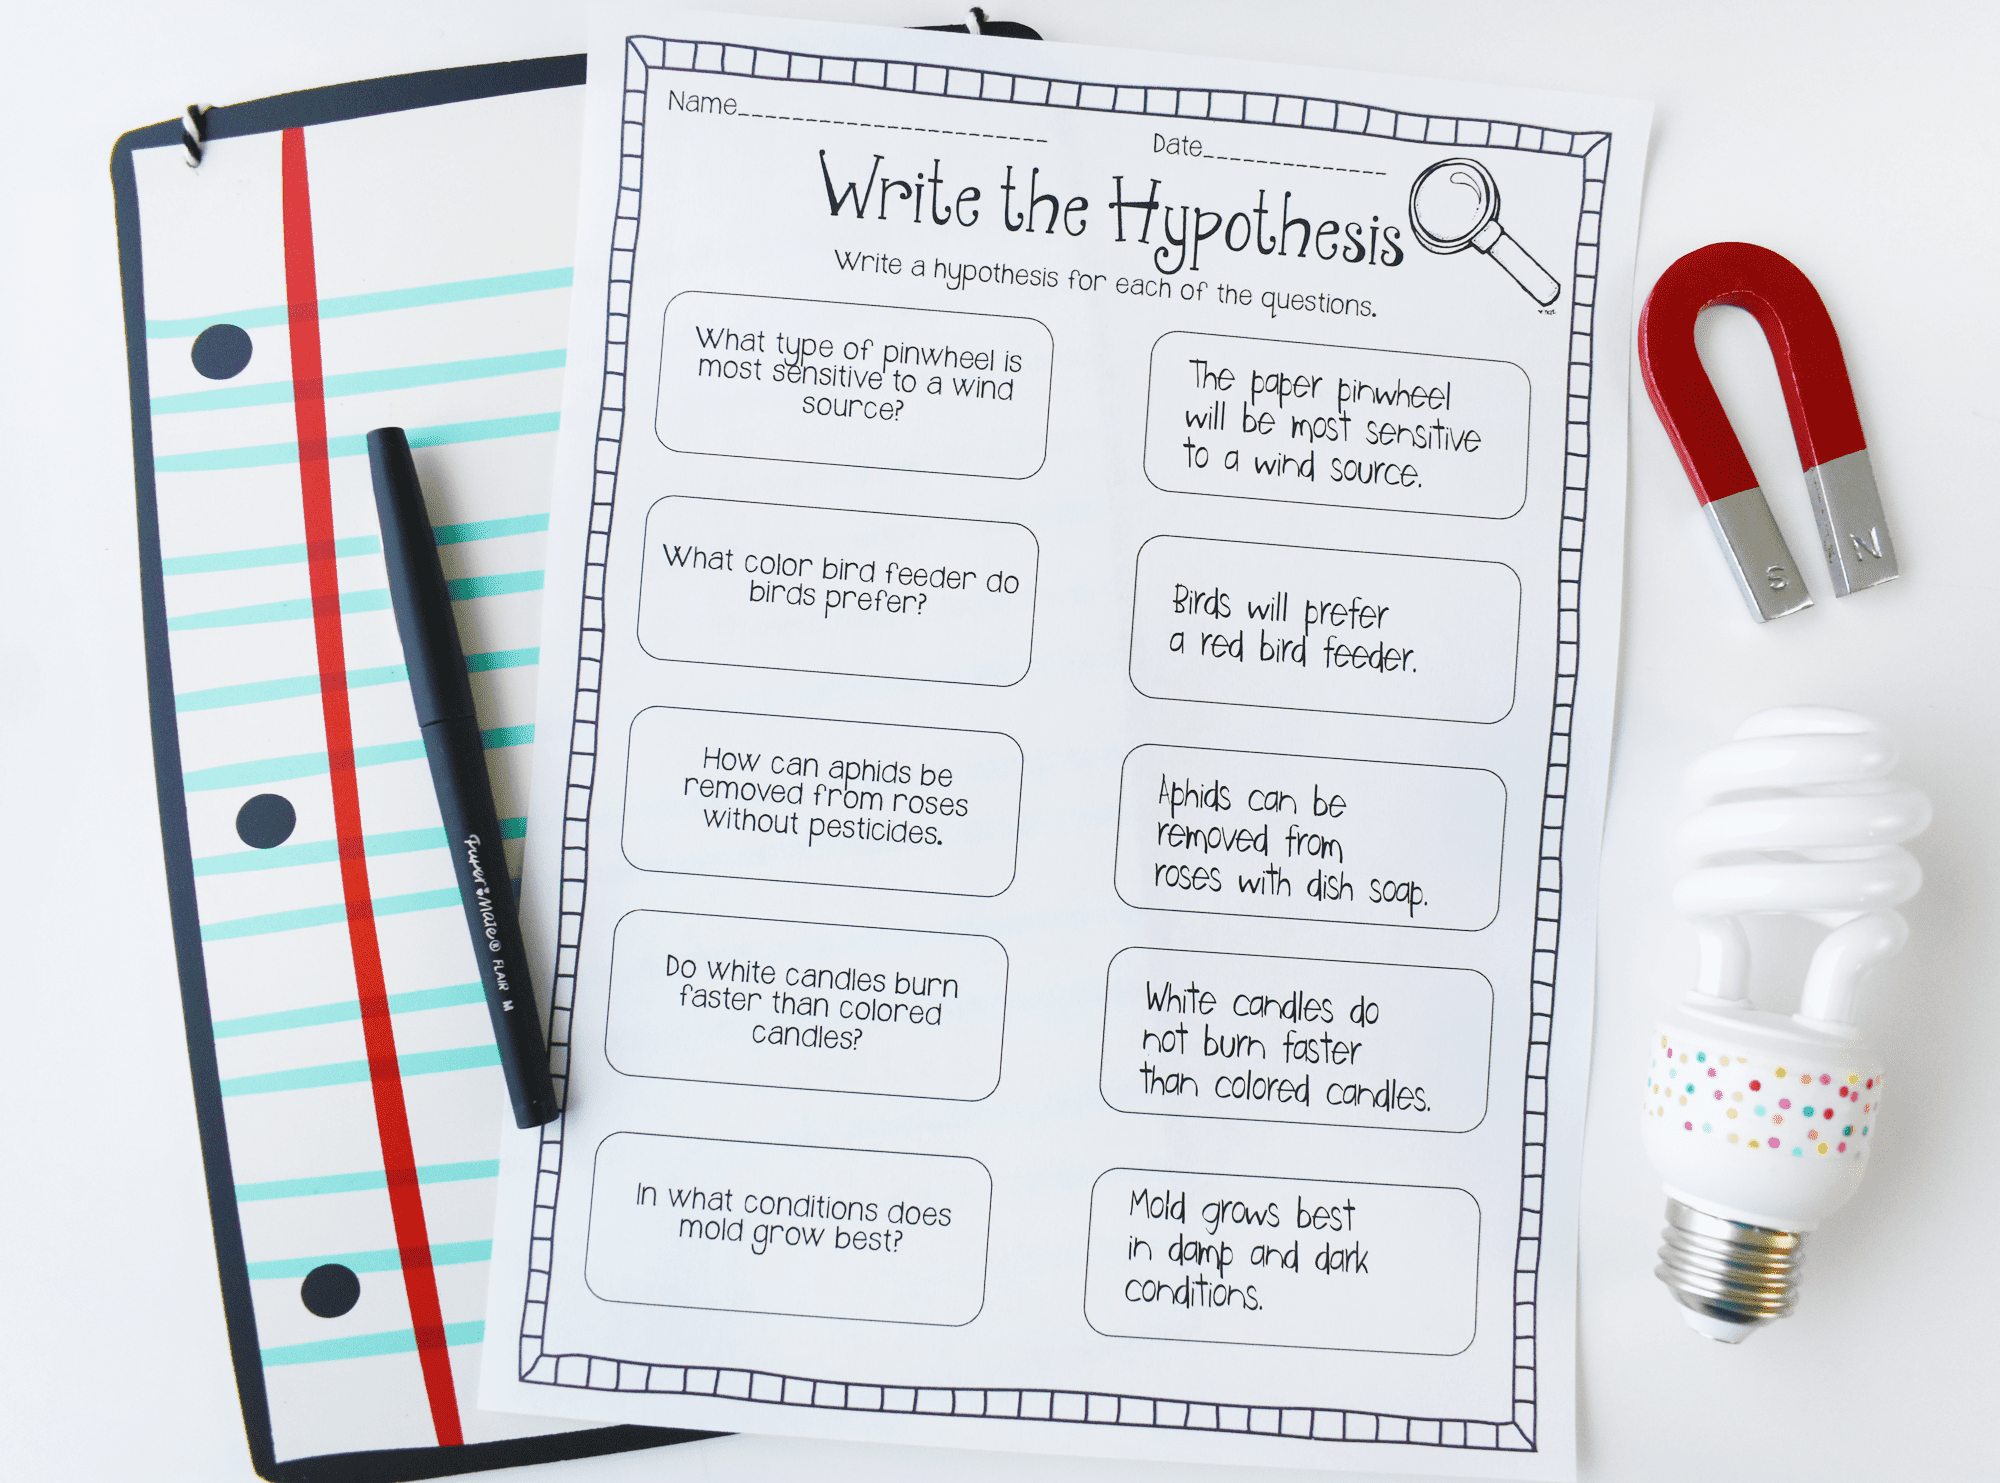 Name
Date
Write the Hypothesis
Write a hypothesis for each of the questions.
What type of pinwheel is
most sensitive to a wind
source?
The paper pinwheel
will be most sensitive
to a wind source.
What color bird feeder do
birds prefer?
Birds will prefer
a red bird feeder.
How can aphids be
removed from roses
without pesticides.
Aphids can be
removed from
roses with dish soap.
Do white candles burn
faster than colored
candles?
White candles do
not burn faster
than colored candles.
In what conditions does
mold grow best?
Mold grows best
in damp and dark
conditions.
Paper Mate® FLAIR M
S
N